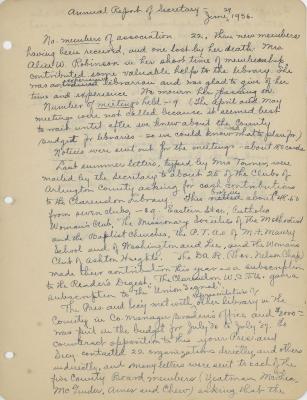 Annual Report of Secretary -
June, 29 1936.
No. members of association - 22. Three new members
having been received, and one lost by her death. Mrs
Alice W. Robinson in her short time of membership
contributed some valuable help to the library. She
was an librarian and was glad to give of her
time and experience. We mourn her passing on.
Number of meetings held - 9. (The April and May
meetings were not called because it seemed best
to wait until after we knew about the County
Budget for libraries - so we could know what to plan for.)
Notices were sent out for the meetings - about 180 cards.
Last summer letters, typed by Mrs Tanner, were
mailed by the secretary to about 25 of the Clubs of
Arlington County, asking for cash contributions
to the Clarendon Library. This netted about
from seven clubs - Eastern Star, Catholic
Woman's Club, The Missionary Societies of the Methodist
and the Baptist Churches, the P.T.A.s of M.F. Maury
School and of Washington and Lee, and the Woman's
Club of Ashton Heights. The D.A.R. (Nelson Chap)
made their contribution this year - as a subscription
to the Reader's Digest. The Clarendon W.C.T.U. gave a
subscription to the "Union Signal".
The Pres. and Secy met with of other library in the
County in Co. Manager office and
was put in the budget for July '36 to July '37. To
counteract opposition to this your Pres. and
Secy contacted 22 organizations directly and others
indirectly, and many letters were sent to each of the
five County Board members (Yeatman,
McGruder, Ames and Chew) asking that the